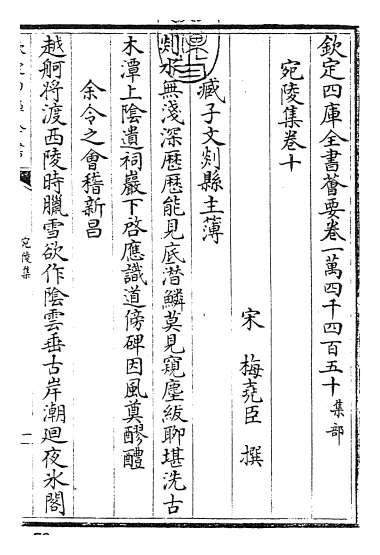 欽定四庫全書薈要卷一萬四千四百五十 集部
宛陵集卷十
宋 梅堯臣 撰
臧子文剡縣主薄
剡水無淺深歴歴能見底潜鱗莫見窺塵紱聊堪洗古
木潭上陰遺祠巖下啓應識道傍碑因風奠醪醴
余令之會稽新昌
越舸将渡西陵時臘雪欲作陰雲垂古岸潮廻夜氷閣
宛陵集
一